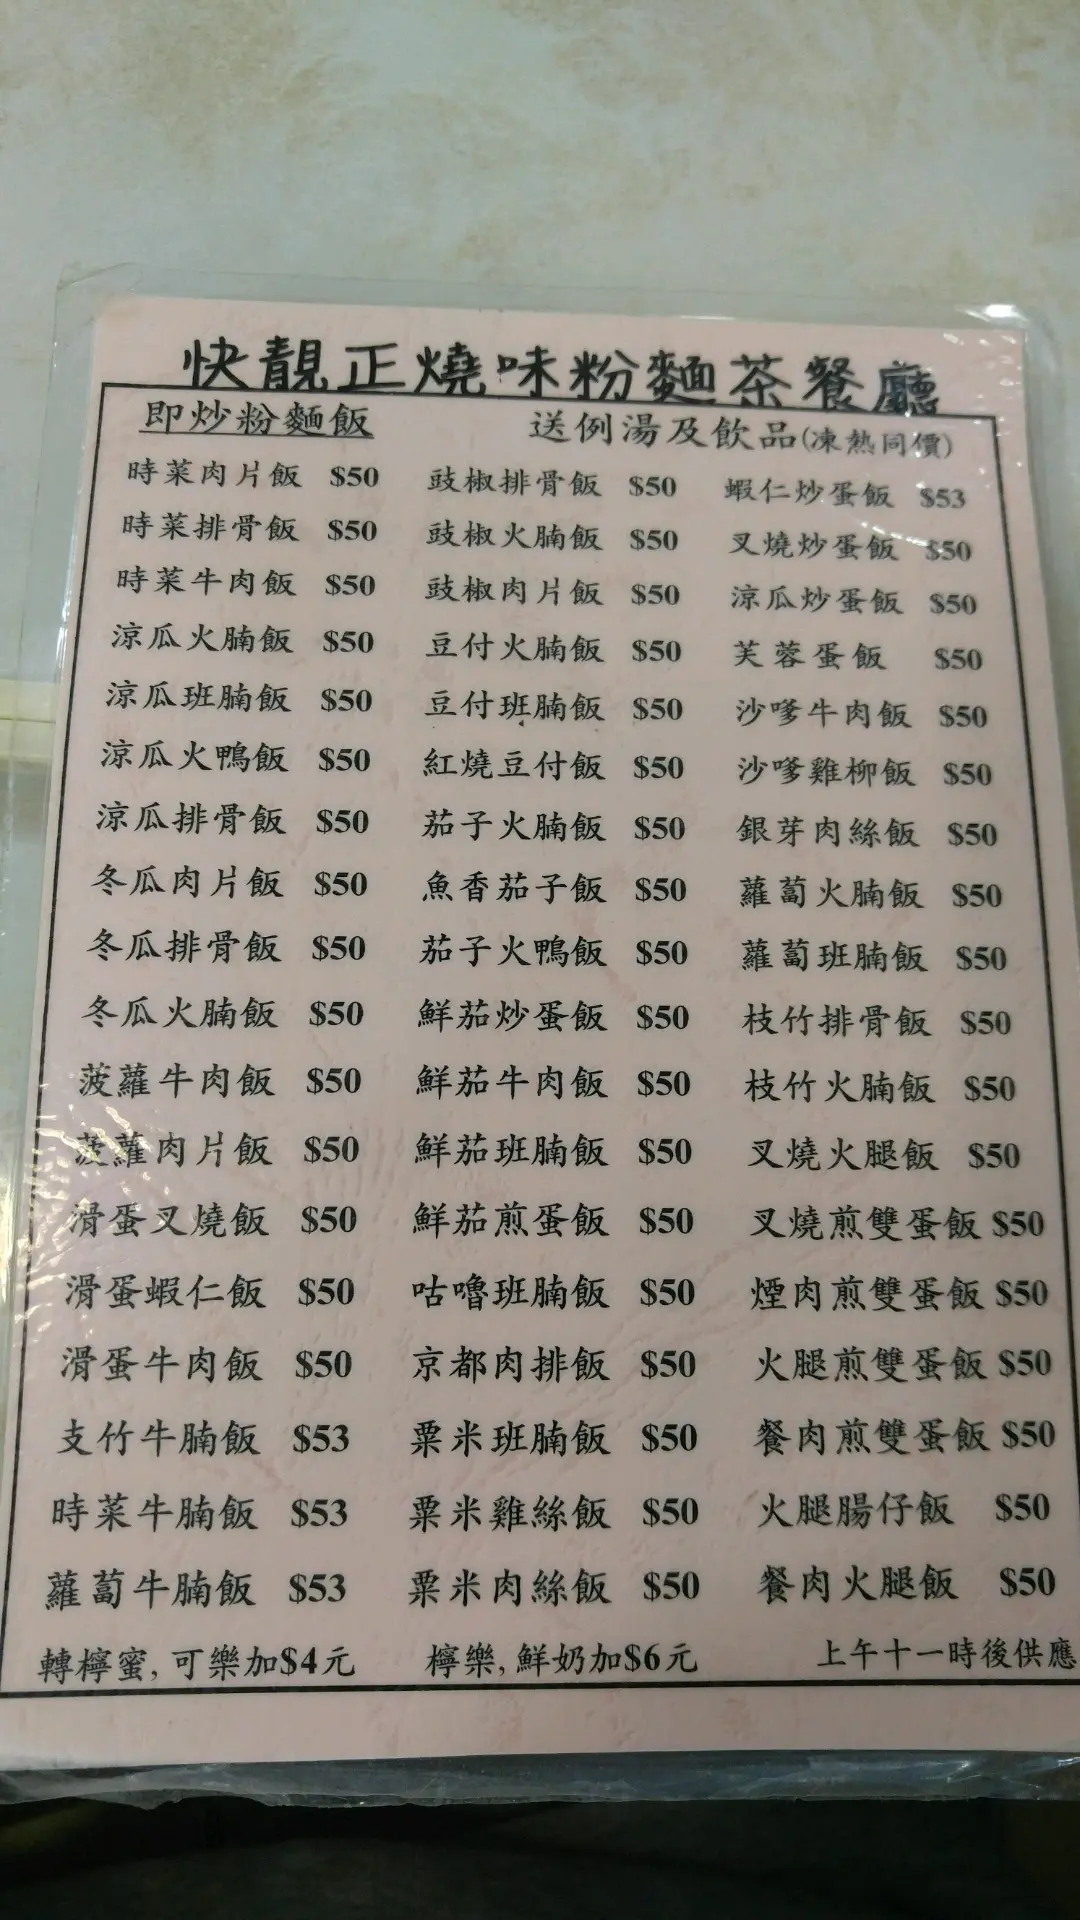 快靚正燒味粉麵茶餐廳
即炒粉麵飯 送例湯及飲品(凍熱同價)
時菜肉片飯 $50 豉椒排骨飯 $50 蝦仁炒蛋飯 $53
時菜排骨飯 $50 豉椒火腩飯 $50 叉燒炒蛋飯 $50
時菜牛肉飯 $50 豉椒肉片飯 $50 涼瓜炒蛋飯 $50
涼瓜火腩飯 $50 豆付火腩飯 $50 芙蓉蛋飯 $50
涼瓜班腩飯 $50 豆付班腩飯 $50 沙嗲牛肉飯 $50
涼瓜火鴨飯 $50 紅燒豆付飯 $50 沙嗲雞柳飯 $50
涼瓜排骨飯 $50 茄子火腩飯 $50 銀芽肉絲飯 $50
冬瓜肉片飯 $50 魚香茄子飯 $50 蘿蔔火腩飯 $50
冬瓜排骨飯 $50 茄子火鴨飯 $50 蘿蔔班腩飯 $50
冬瓜火腩飯 $50 鮮茄炒蛋飯 $50 枝竹排骨飯 $50
菠蘿牛肉飯 $50 鮮茄牛肉飯 $50 枝竹火腩飯 $50
菠蘿肉片飯 $50 鮮茄班腩飯 $50 叉燒火腿飯 $50
滑蛋叉燒飯 $50 鮮茄煎蛋飯 $50 叉燒煎雙蛋飯 $50
滑蛋蝦仁飯 $50 咕嚕班腩飯 $50 煙肉煎雙蛋飯 $50
滑蛋牛肉飯 $50 京都肉排飯 $50 火腿煎雙蛋飯 $50
支竹牛腩飯 $53 粟米班腩飯 $50 餐肉煎雙蛋飯 $50
時菜牛腩飯 $53 粟米雞絲飯 $50 火腿腸仔飯 $50
蘿蔔牛腩飯 $53 粟米肉絲飯 $50 餐肉火腿飯 $50
轉檸蜜, 可樂加$4元 檸樂, 鮮奶加$6元 上午十一時後供應